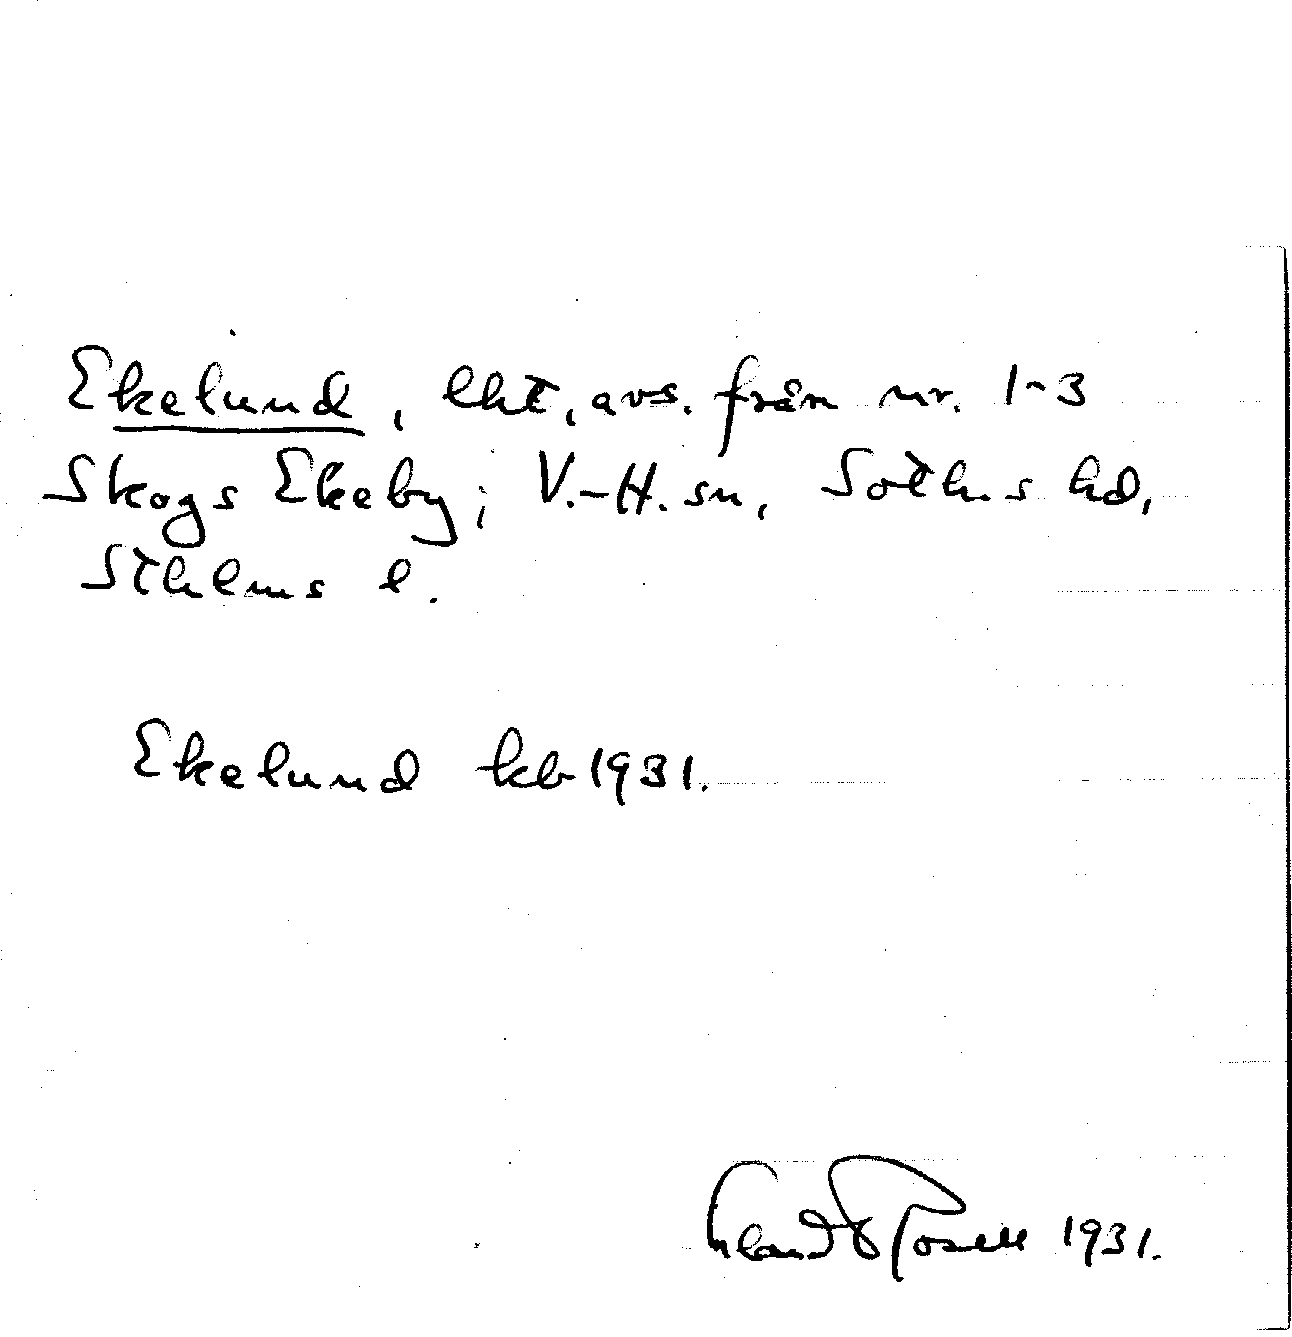 Ekelund, lht, avs. från nr. 1-3
Skogs Ekeby; V.-H. sn, Sothms hd,
Sthlms l.
Ekelund kb 1931.
Erland Rosell 1931.